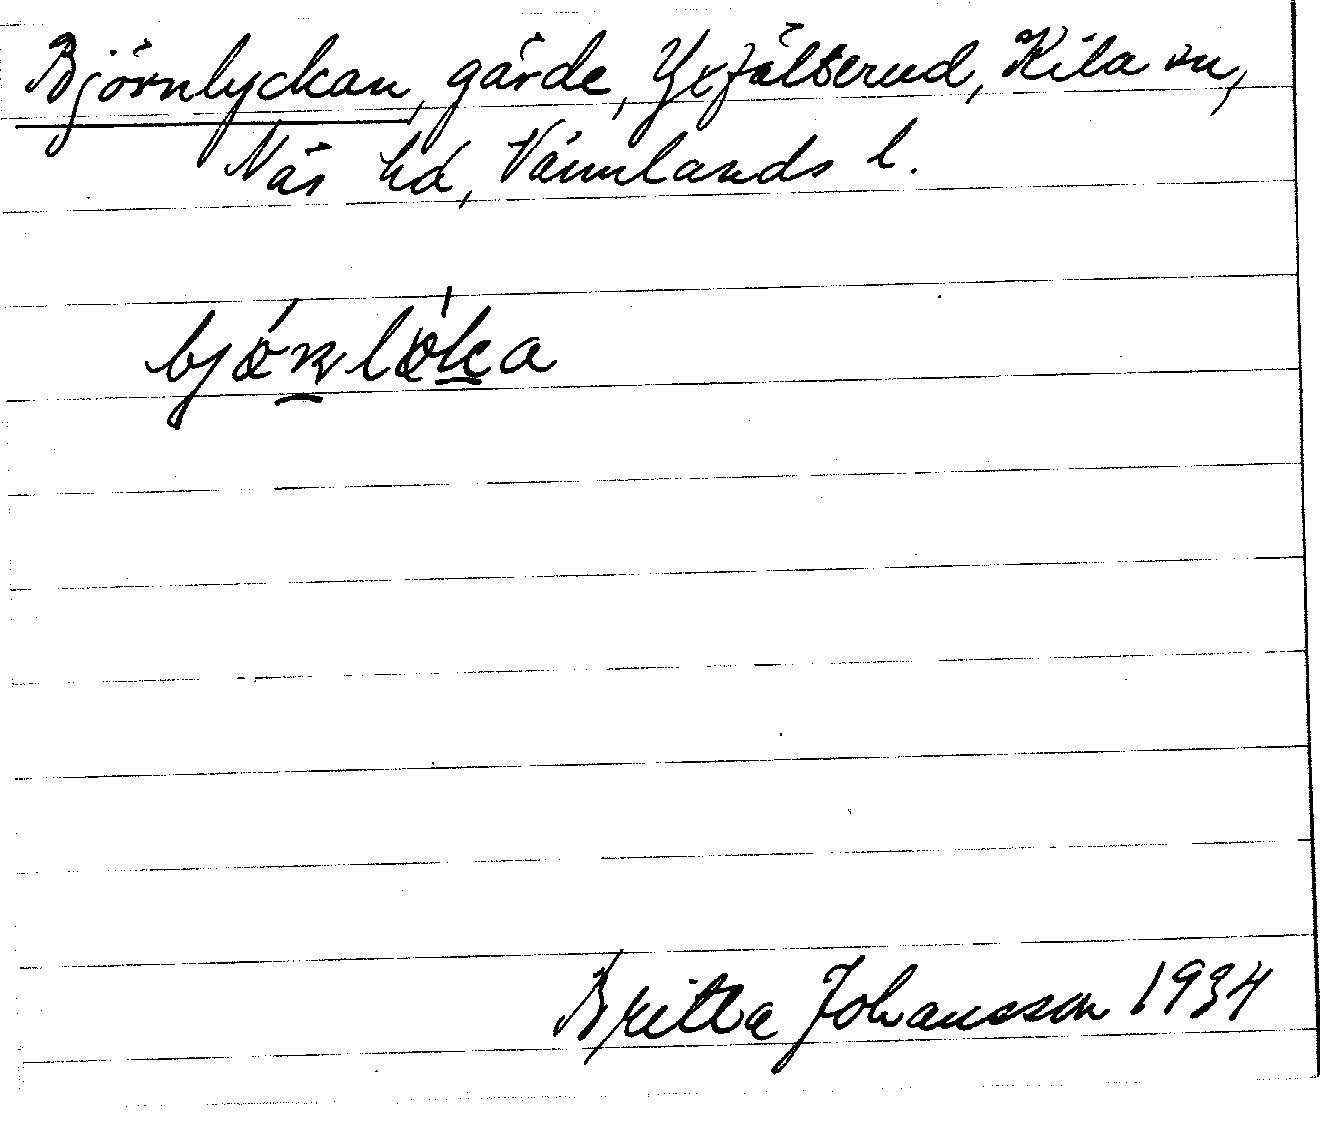 Björnlyckan, gärde, Yxfälserud, Kila sn,
Näs hd, Värmlands l.
bjǿnløka
Britta Johansson 1934